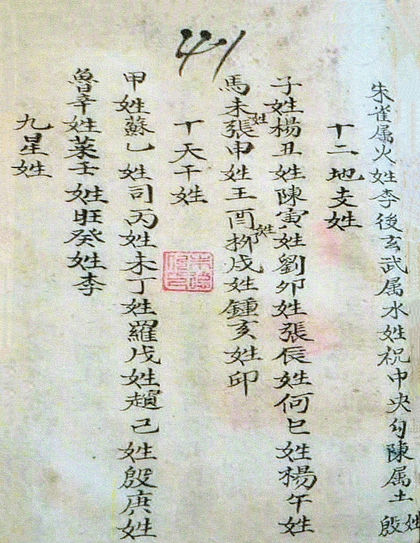 41
朱雀属火姓李後玄武属水姓祝中央勾陳属土姓殷
十二地支姓
子姓楊丑姓陳寅姓劉卯姓張辰姓何巳姓楊午姓
馬未姓張申姓王酉姓柳戌姓鍾亥姓印
十天干姓
甲姓蘇乙姓司丙姓未丁姓羅戊姓趙己姓殷庚姓
魯辛姓莱壬姓旺癸姓李
九星姓